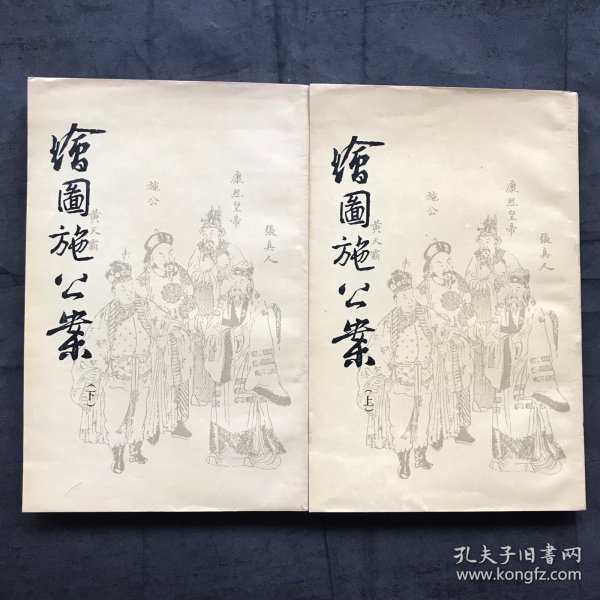 繪圖施公案
（下）
黃天霸
施公
康熙皇帝
繪圖施公案
（上）
黃天霸
施公
康熙皇帝
張真人
孔夫子旧书网
www.kongfz.com